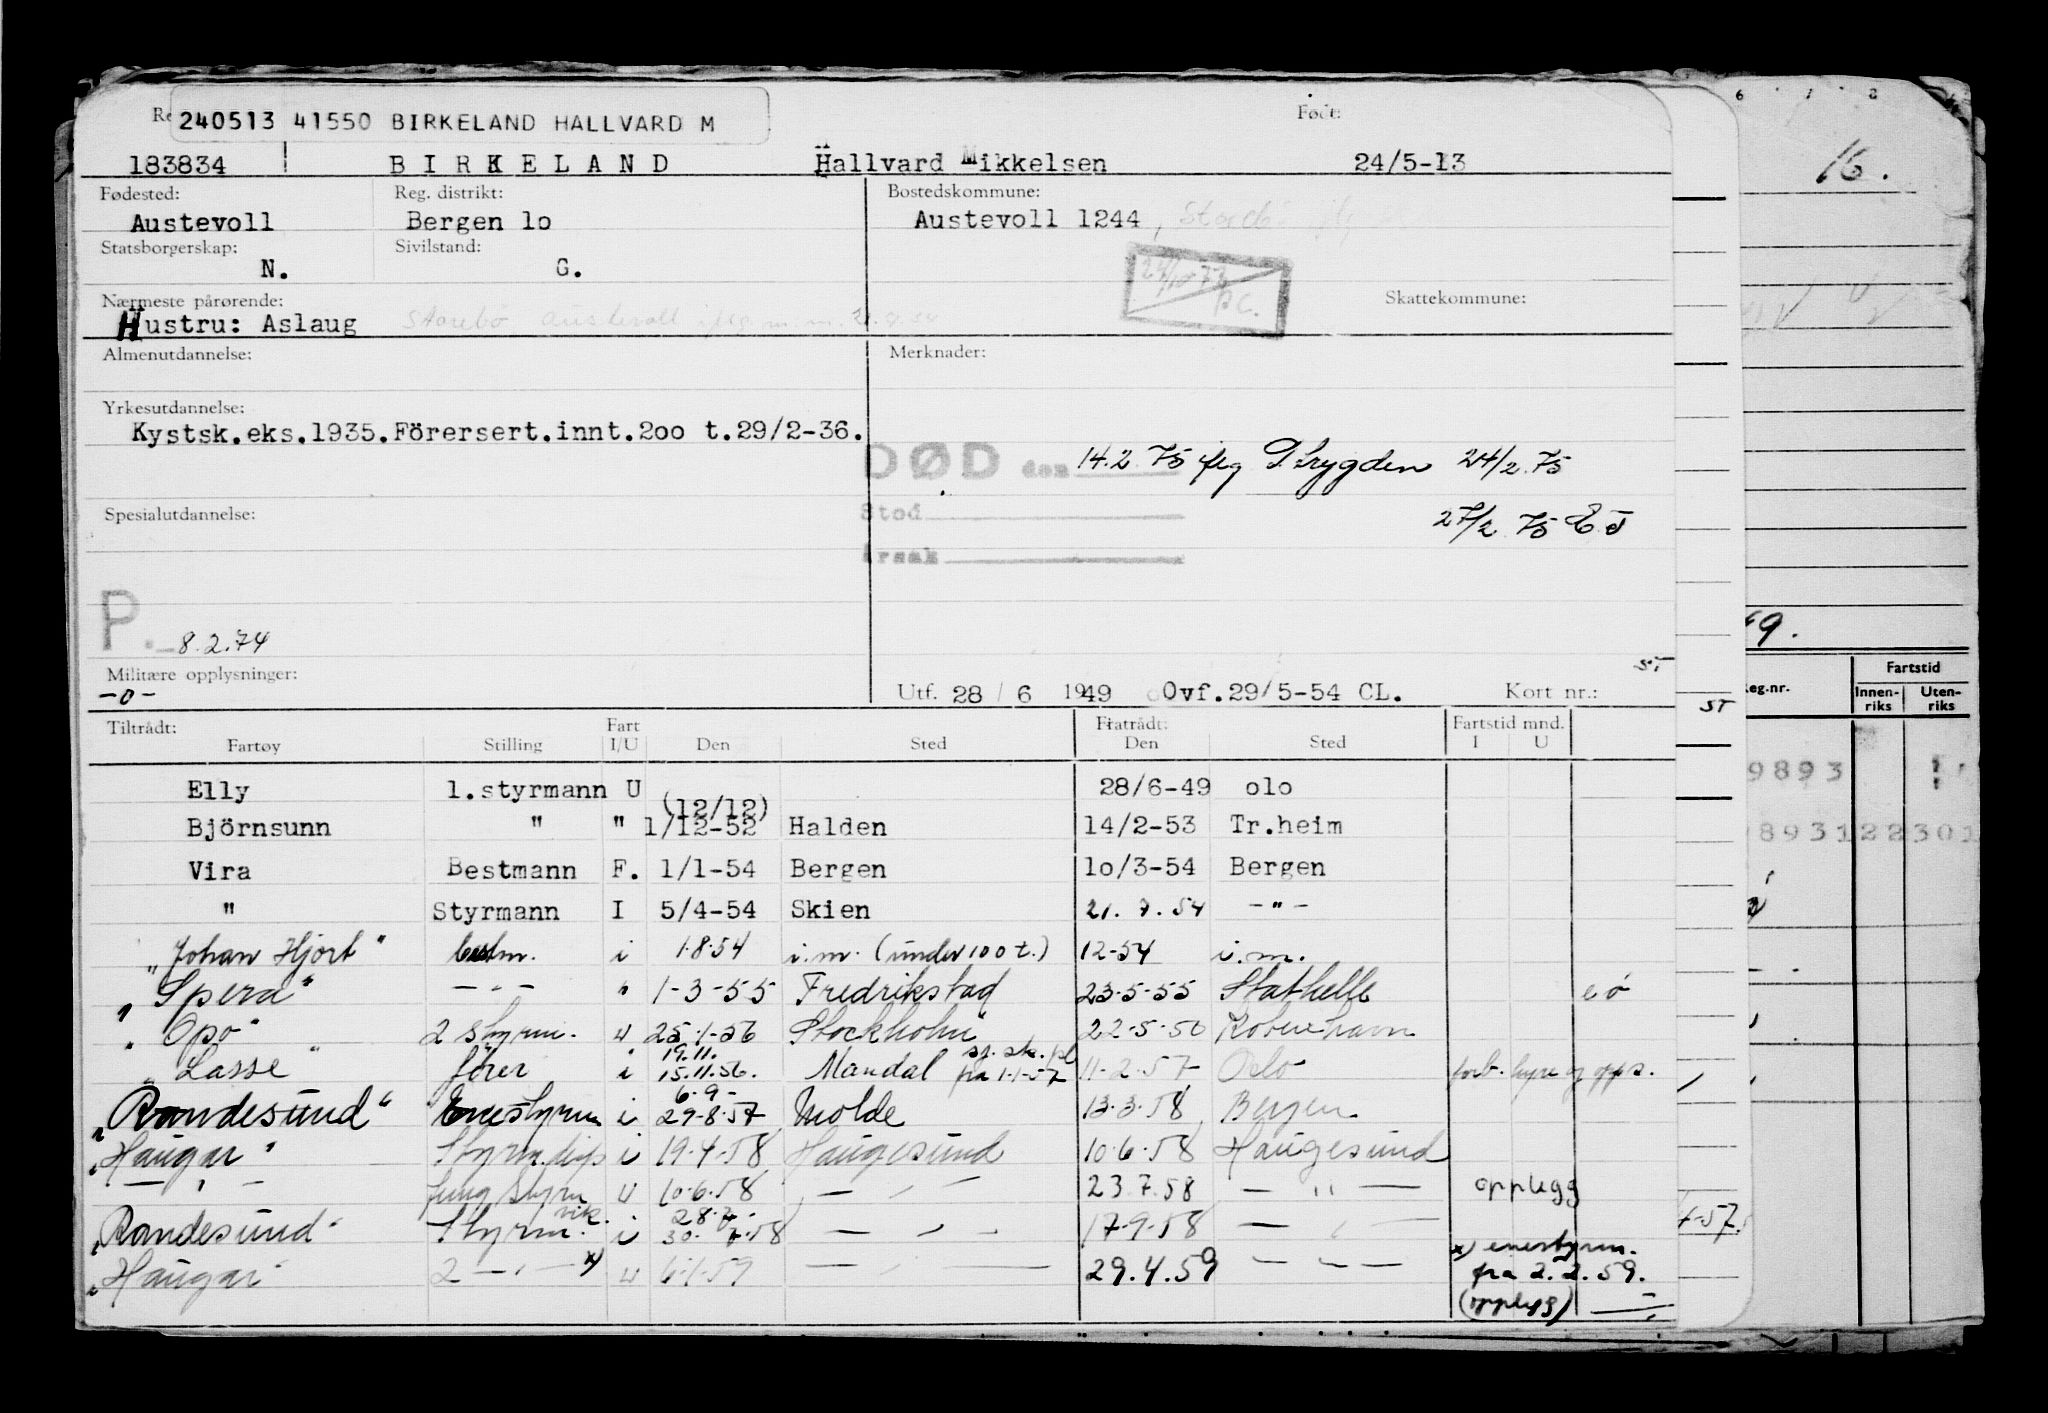 240513 41550 BIRKELAND HALLVARD M
Født:
183834 BIRKELAND Hallvard Mikkelsen 24/5-13
Fødested: Reg. distrikt: Bostedskommune:
Austevoll Bergen lo Austevoll 1244,
Statsborgerskap: Sivilstand:
N. G.
Nærmeste pårørende: Skattekommune:
Hustru: Aslaug
Almenutdannelse: Merknader:
Yrkesutdannelse:
Kystsk.eks.1935.Førersert.innt.2oo t.29/2-36.
DØD den 14.2.75 flg D.trygden 24/2.75
Spesialutdannelse: Sted 27/2.75 E.J
Årsak
P. 8.2.74
Militære opplysninger:
-o- Utf. 28/6 1949 Ovf.29/5-54 CL. Kort nr.:
Tiltrådt: Fart Fratrådt: Fartstid mnd.
Fartøy Stilling I/U Den Sted Den Sted I U
Elly 1.styrmann U 28/6-49 olo
(12/12)
Björnsunn " " 1/12-52 Halden 14/2-53 Tr.heim
Vira Bestmann F. 1/1-54 Bergen lo/3-54 Bergen
" Styrmann I 5/4-54 Skien 21.7.54 -"-
"Johan Hjort" bestm. i 1.8.54 i.m. (under 100 t.) 12-54 i.m.
"Spera" -"- " 1-3-55 Fredrikstad 23-5-55 Stathelle
"Opo" 2 styrm. u 25.1-56 Stockholm 22-5-56 København
"Lasse" fører i 19.11. 15.11.56. Mandal fra 1-1-57 11-2-57 Oslo forb. hyre og opps.
"Randesund" Enestyrm i 6-9- 29-8-57 Molde 13.3.58 Bergen
"Haugar" Styrm. i 19.4.58 Haugesund 10.6.58 Haugesund
-"- styrm u 10.6.58 -"- 23.7.58 -"- opplegg
"Randesund" Styrm. vik. i 28.7. 30.7.58 -"- 17-9-58 -"-
"Haugar" 2 -"- x) u 6.1.59 -"- 29.4.59 -"- x) enestyrm.
fra 2.2.59.
(opplegg)
ST
ST
16.
49.
Fartstid
Reg.nr. Innen-riks Uten-riks
9893
893122301
4-57.